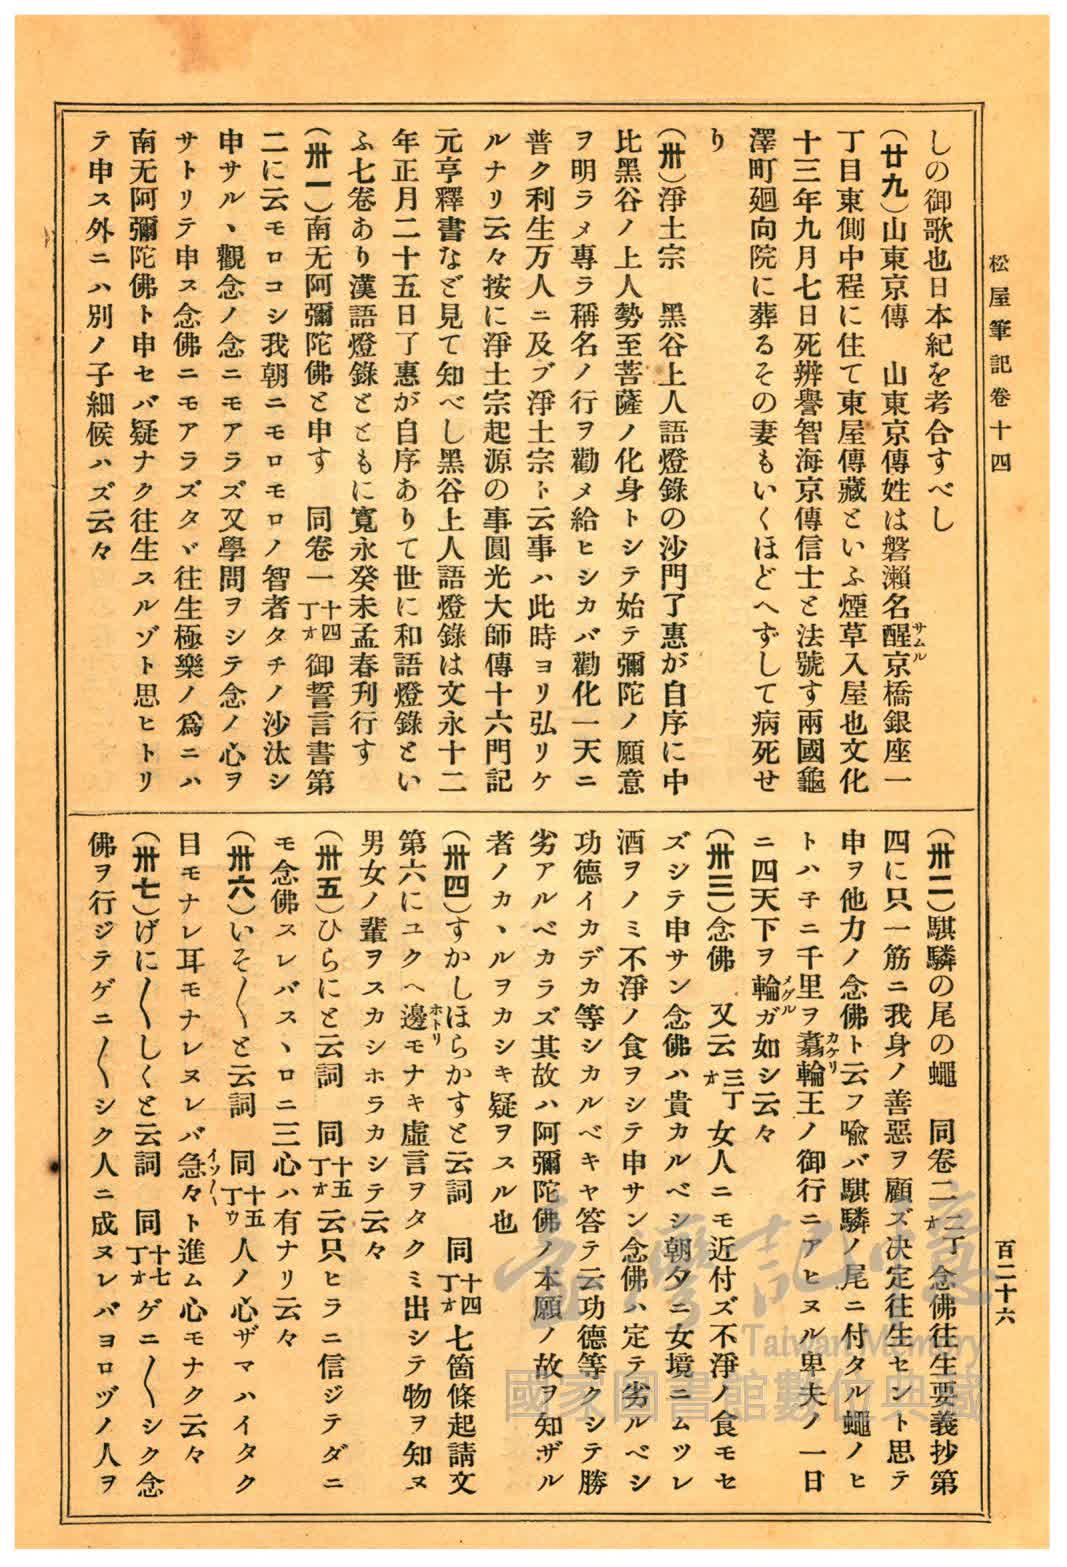 松屋筆記卷十四
百二十六
しの御歌也日本紀を考合すべし
(廿九)山東京傳　山東京傳姓は磐瀬名醒サムル京橋銀座一
丁目東側中程に住て東屋傳藏といふ煙草入屋也文化
十三年九月七日死辨譽智海京傳信士と法號す兩國龜
澤町廻向院に葬るその妻もいくほどへずして病死せ
り
(卅)淨土宗　黑谷上人語燈錄の沙門了惠が自序に中
比黑谷ノ上人勢至菩薩ノ化身トシテ始テ彌陀ノ願意
ヲ明ラメ專ラ稱名ノ行ヲ勸メ給ヒシカバ勸化一天ニ
普ク利生万人ニ及ブ淨土宗ト云事ハ此時ヨリ弘リケ
ルナリ云々按に淨土宗起源の事圓光大師傳十六門記
元亨釋書など見て知べし黑谷上人語燈錄は文永十二
年正月二十五日了惠が自序ありて世に和語燈錄とい
ふ七卷あり漢語燈錄とともに寬永癸未孟春刊行す
(卅一)南无阿彌陀佛と申す　同卷一十四丁オ御誓言書第
二に云モロコシ我朝ニモロモロノ智者タチノ沙汰シ
申サルヽ觀念ノ念ニモアラズ又學問ヲシテ念ノ心ヲ
サトリテ申ス念佛ニモアラズタヾ往生極樂ノ爲ニハ
南无阿彌陀佛ト申セバ疑ナク往生スルゾト思ヒトリ
テ申ス外ニハ別ノ子細候ハズ云々
(卅二)騏驎の尾の蠅　同卷二二丁オ念佛往生要義抄第
四に只一筋ニ我身ノ善惡ヲ顧ズ决定往生セント思テ
申ヲ他力ノ念佛ト云フ喩バ騏驎ノ尾ニ付タル蠅ノヒ
トハ子ニ千里ヲ翥カケリ輪王ノ御行ニアヒヌル卑夫ノ一日
ニ四天下ヲ輪メグルガ如シ云々
(卅三)念佛　又云三丁オ女人ニモ近付ズ不淨ノ食モセ
ズシテ申サン念佛ハ貴カルベシ朝タニ女境ニムツレ
酒ヲノミ不淨ノ食ヲシテ申サン念佛ハ定テ劣ルベシ
功德イカデカ等シカルベキヤ答テ云功德等クシテ勝
劣アルベカラズ其故ハ阿彌陀佛ノ本願ノ故ヲ知ザル
者ノカヽルヲカシキ疑ヲスル也
(卅四)すかしほらかすと云詞　同十四丁オ七箇條起請文
第六にユクヘ邊ホトリモナキ虛言ヲタクミ出シテ物ヲ知ヌ
男女ノ輩ヲスカシホラカシテ云々
(卅五)ひらにと云詞　同十五丁オ云只ヒラニ信ジテダニ
モ念佛スレバスヽロニ三心ハ有ナリ云々
(卅六)いそ〱と云詞　同十五丁ウ人ノ心ザマハイタク
目モナレ耳モナレヌレバ急々イソ〱ト進ム心モナク云々
(卅七)げに〱しくと云詞　同十七丁オゲニ〱シク念
佛ヲ行ジテゲニ〱シク人ニ成ヌレバヨロヅノ人ヲ
臺灣記憶
Taiwan Memory
國家圖書館數位典藏